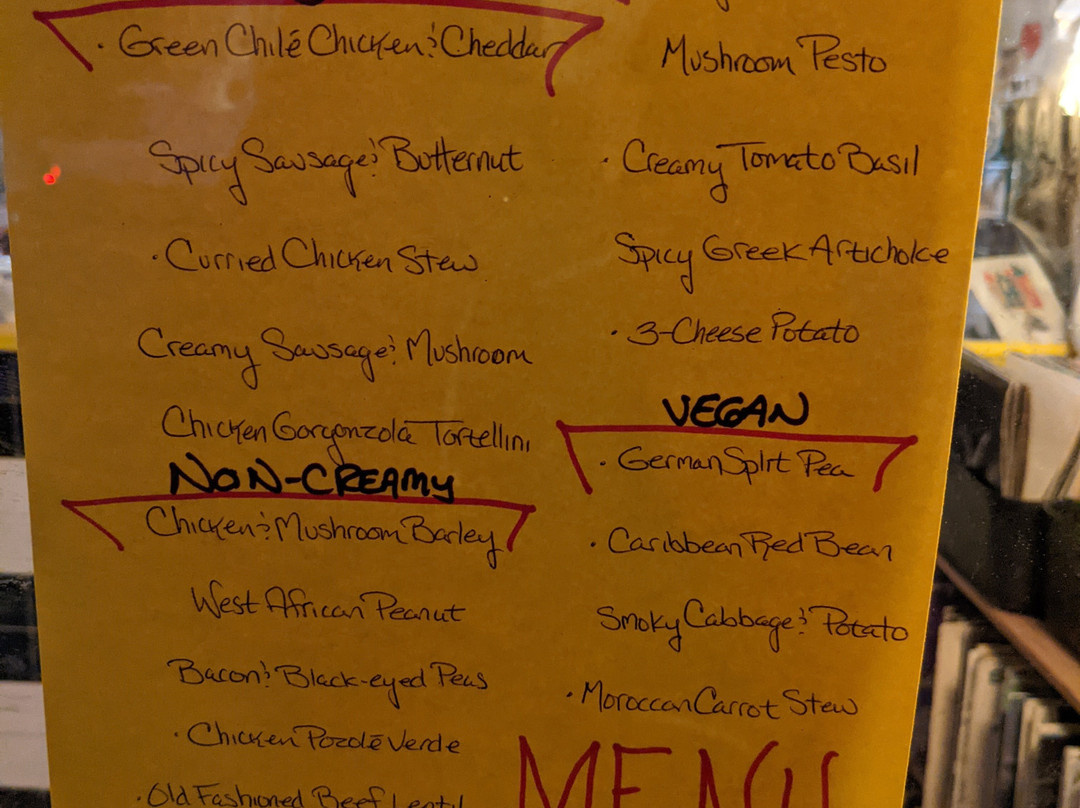 · Green Chilé Chicken & Cheddar
Spicy Sausage & Butternut
· Curried Chicken Stew
Creamy Sausage & Mushroom
Chicken Gorgonzola Tortellini
NON-CREAMY
Chicken & Mushroom Barley
West African Peanut
Bacon & Black-eyed Peas
· Chicken Pozolé Verde
· Old Fashioned Beef Lentil
Mushroom Pesto
· Creamy Tomato Basil
Spicy Greek Artichoke
· 3-Cheese Potato
VEGAN
· German Split Pea
· Caribbean Red Bean
Smoky Cabbage & Potato
· Moroccan Carrot Stew
MENU